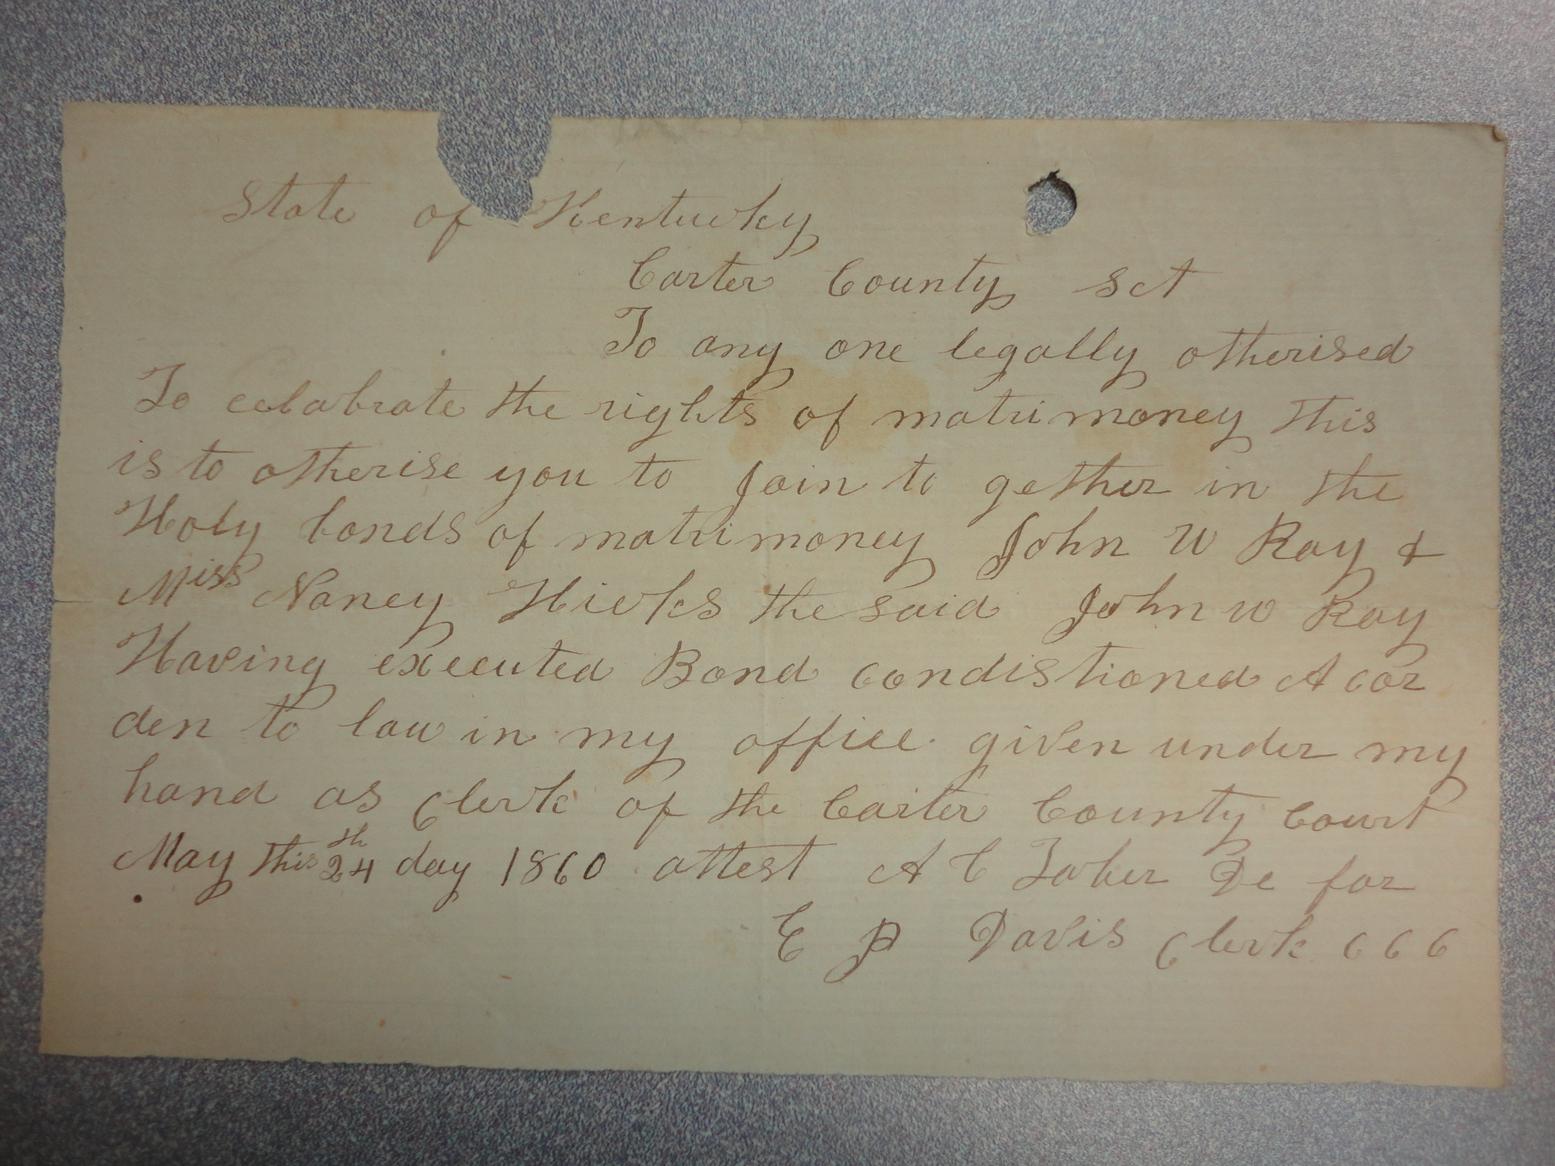 State of Kentucky
Carter County Sct
To any one legally otherised
To celabrate the rights of matrimoney this
is to otherise you to Join to gether in the
Holy bonds of matrimoney John W Ray &
Miss Nancy Hicks the said John W Ray
Having executed Bond condistioned A cor
den to law in my office given under my
hand as Clerk of the Carter County Court
May this 24th day 1860 attest A C De for
E P Davis Clerk C C C